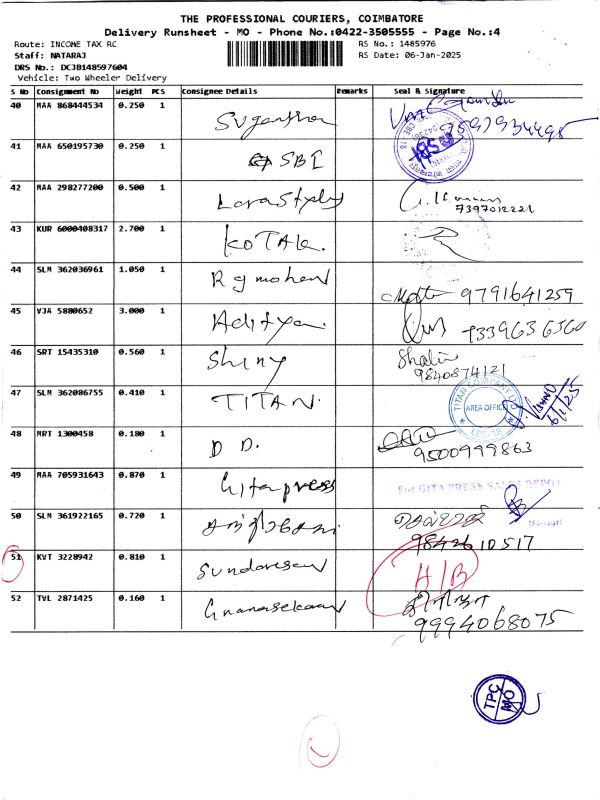 THE PROFESSIONAL COURIERS, COIMBATORE
Delivery Runsheet - MO - Phone No.:0422-3505555 - Page No.:4
Route: INCOME TAX RC RS No.: 1485976
Staff: NATARAJ RS Date: 06-Jan-2025
DRS No.: DCJB148597604
Vehicle: Two Wheeler Delivery
S No Consignment No Weight PCS Consignee Details Remarks Seal & Signature
40 MAA 868444534 0.250 1
41 MAA 650195730 0.250 1 SBI
42 MAA 298277200 0.500 1 7397012221
43 KUR 6000408317 2.700 1 KOTAK.
44 SLM 362036961 1.050 1 Rgmohan 9791641259
45 VJA 5880652 3.000 1 Aditya.
46 SRT 15435310 0.560 1 Shiny
9840874121
47 SLM 362086755 0.410 1 TITAN. TITAN COMPANY LTD AREA OFFICE 6/1/25
48 MRT 1300458 0.180 1 D D.
9500999863
49 MAA 705931643 0.870 1 Gitapress For GITA PRESS SALES DEPOT
Manager
50 SLM 361922165 0.720 1
9842610517
51 KVT 3228942 0.810 1 Sundaresan H/B
52 TVL 2871425 0.160 1 Gnanasekaran
9994068075
TPC MO